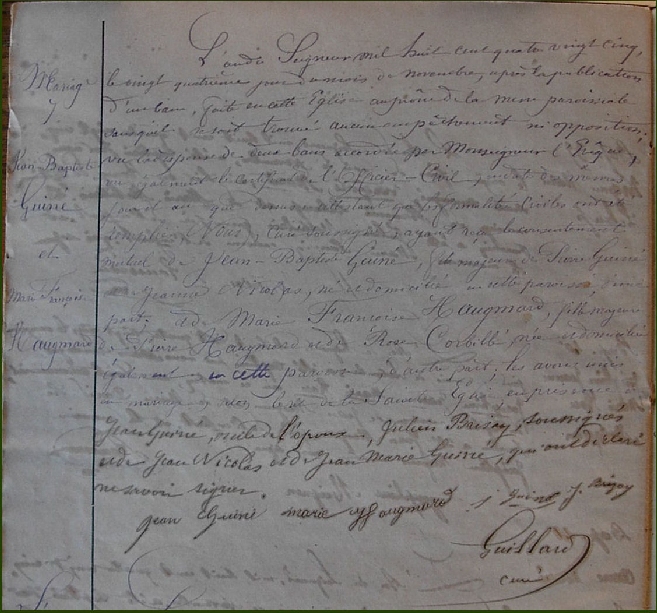 Mariage
7
Jean-Baptiste
Guiné
et
Marie Françoise
Haugmard
L'an du Seigneur mil huit cent quatre vingt cinq,
le vingt quatrième jour du mois de novembre, après la publication
d'un ban, faite en cette Église au prône de la messe paroissiale
sans qu'il se soit trouvé aucun empêchement ni opposition,
vu la dispense de deux bans accordée par Monseigneur l'Évêque,
vu également le certificat de l'Officier-Civil, en date du même
jour et an que dessus attestant que les formalités civiles ont été
remplies, Nous, Curé soussigné, ayant reçu le consentement
mutuel de Jean-Baptiste Guiné, fils majeur de Jean Guiné
et Jeanne Nicolas, né et domicilié en cette paroisse, d'une
part; et de Marie Françoise Haugmard, fille majeure
de Haugmard et de Rose Corbillé, née et domiciliée
également en cette paroisse, d'autre part; les avons unis
en mariage de la Sainte Église, en présence de
Jean Guiné, de l'époux, Julien Brisoy, soussignés
et de Jean Nicolas et de Jean Marie Guiné, qui ont déclaré
ne savoir signer.
jean Guiné marie haugmard j Guiné J. Brizoy
Guillard
curé